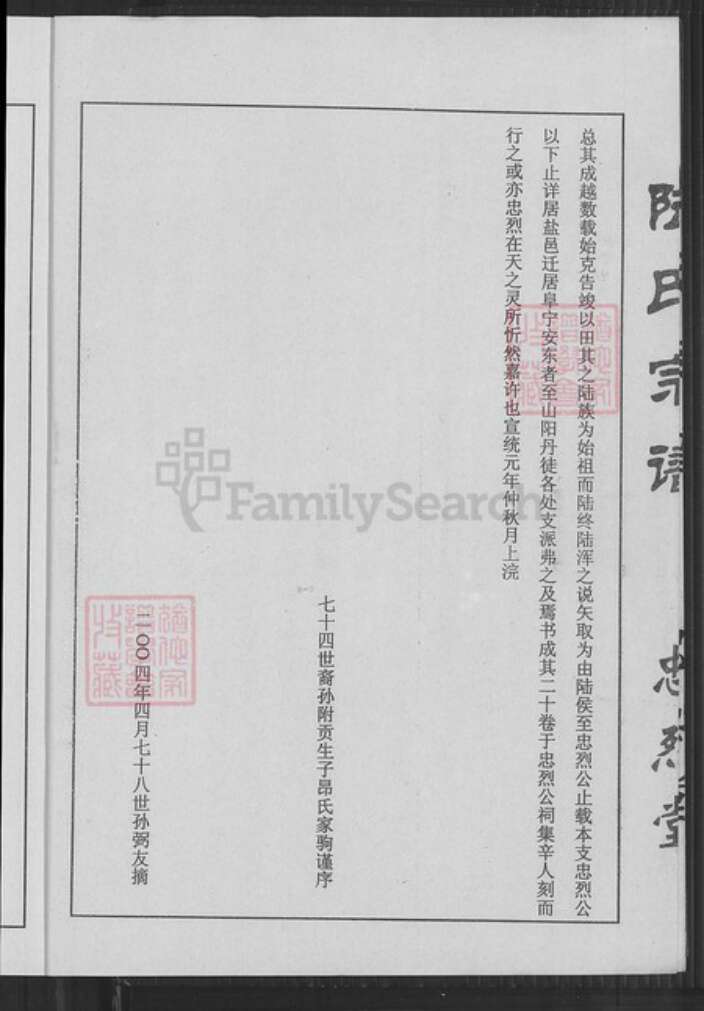 陆氏宗谱 忠烈堂
总其成越数载始克告竣以田其之陆族为始祖而陆终陆浑之说矢取为由陆侯至忠烈公止载本支忠烈公
以下止详居盐邑迁居阜宁安东者至山阳丹徒各处支派弗之及焉书成其二十卷于忠烈公祠集辛人刻而
行之或亦忠烈在天之灵所忻然嘉许也宣统元年仲秋月上浣
七十四世裔孙附贡生子昂氏家驹谨序
二〇〇四年四月七十八世孙弼友摘
FamilySearch